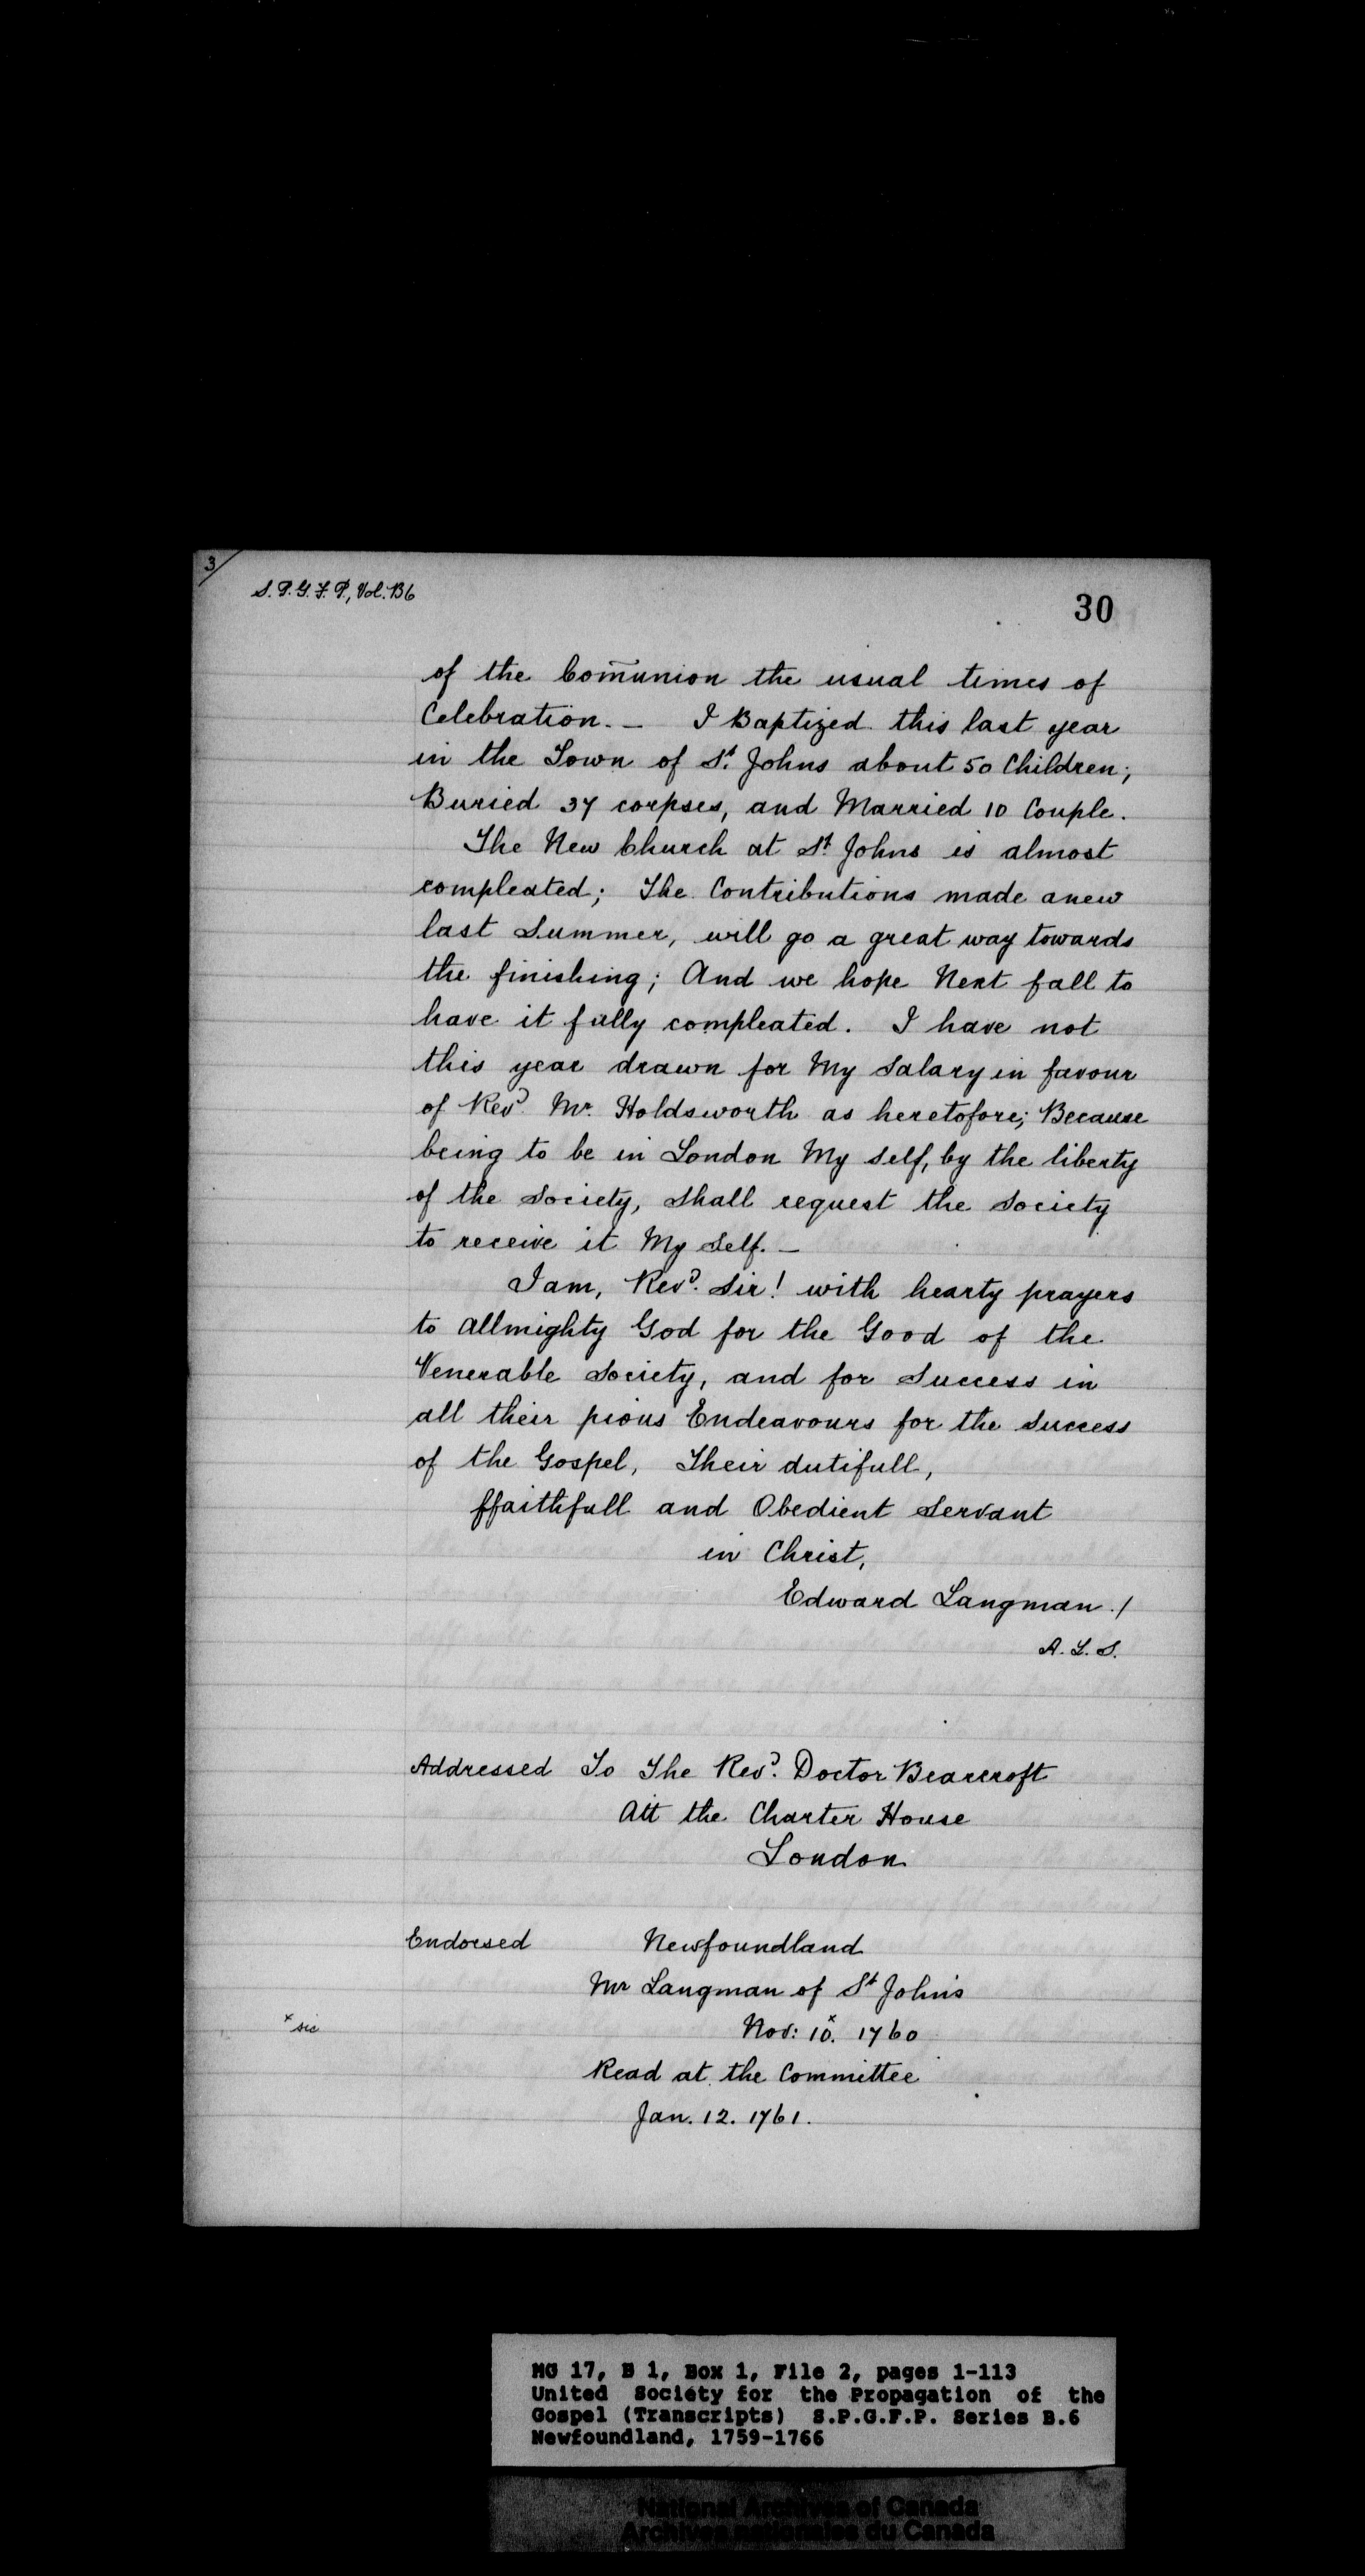 3/
S.P.G.F.P., Vol. B6
30
of the Com̄union the usual times of
Celebration. — I Baptized this last year
in the Town of St. Johns about 50 Children;
Buried 37 corpses, and Married 10 Couple.
The New Church at St. Johns is almost
compleated; The Contributions made anew
last Summer, will go a great way towards
the finishing; And we hope Next fall to
have it fully compleated. I have not
this year drawn for My Salary in favour
of Revd. Mr. Holdsworth as heretofore; Because
being to be in London My self, by the liberty
of the Society, Shall request the Society
to receive it My Self. —
I am, Revd. Sir! with hearty prayers
to Allmighty God for the Good of the
Venerable Society, and for Success in
all their pious Endeavours for the Success
of the Gospel, Their dutifull,
ffaithfull and Obedient Servant
in Christ,
Edward Langman ./
A.L.S.
Addressed To The Revd. Doctor Bearcroft
Att the Charter House
London
Endorsed Newfoundland
Mr Langman of St John's
x sic Nov: 10.x 1760
Read at the Committee
Jan. 12. 1761.
MG 17, B 1, Box 1, File 2, pages 1-113
United Society for the Propagation of the
Gospel (Transcripts) S.P.G.F.P. Series B.6
Newfoundland, 1759-1766
National Archives of Canada
Archives nationales du Canada